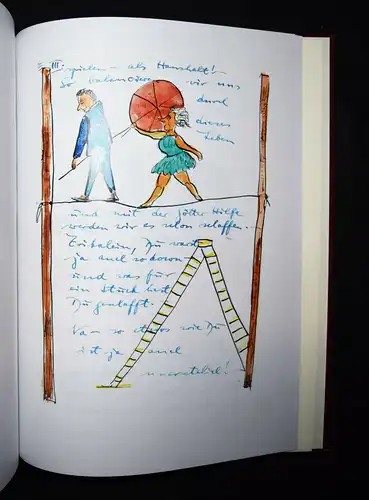 III.
spielen – als Haushalt!
So balancieren wir uns
durch
dieses
Leben
und mit der Götter Hilfe
werden wir es schon schaffen.
Du warst
ja auch so down
und was für
ein Stück hast
Du geschafft.
Na – so etwas wie Du
ist ja auch
unersetzlich!